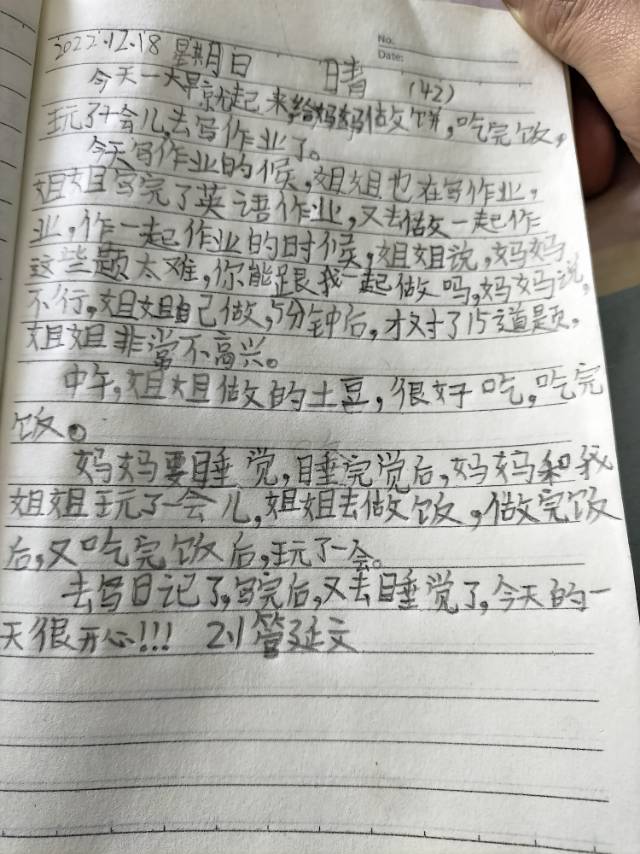 No.
Date:
2022.12.18 星期日 晴 (42)
今天一大早就起来给妈妈做饼,吃完饭,
玩了一会儿去写作业了。
今天写作业的候,姐姐也在写作业,
姐姐写完了英语作业,又去做一起作
业,作一起作业的时候,姐姐说,妈妈
这些题太难,你能跟我一起做吗,妈妈说,
不行。姐姐自己做,5分钟后,才对了15道题,
姐姐非常不高兴。
中午,姐姐做的土豆,很好吃。吃完
饭。
妈妈要睡觉,睡完觉后,妈妈和我
姐姐玩了一会儿,姐姐去做饭,做完饭
后,又吃完饭后,玩了一会。
去写日记了,写完后,又去睡觉了,今天的一
天很开心!!! 2.1管延文